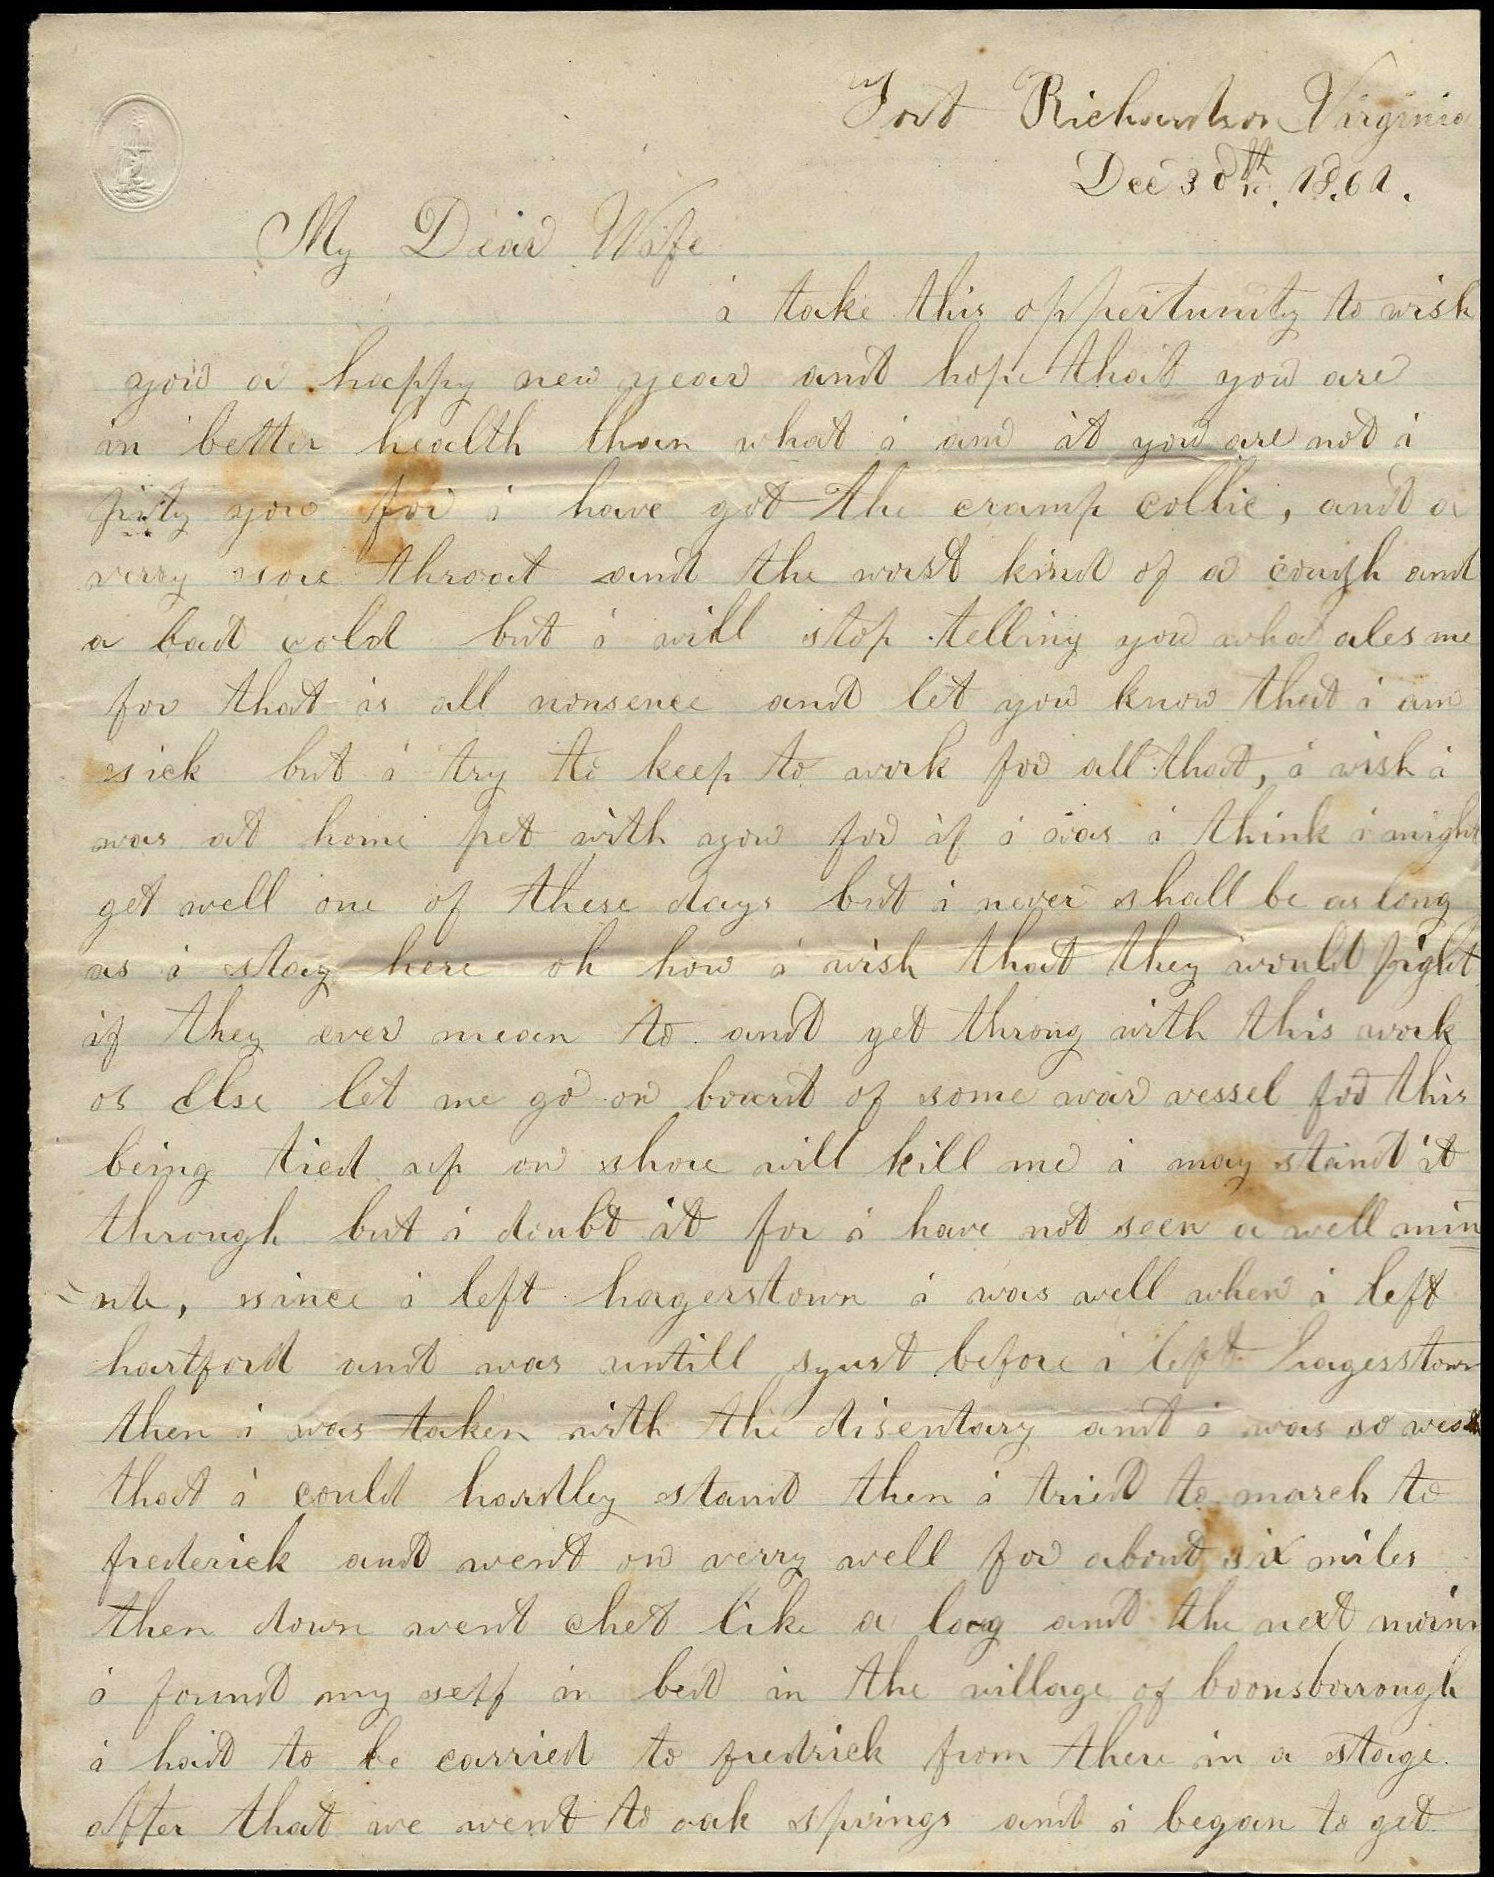 Fort Richardson Virginia
Dec 30th. 1861.
My Dear Wife
i take this oppertunity to wish
you a happy new year and hope that you are
in better health than what i am it you are not i
pity you for i have got the cramp collic, and a
verry sore throat and the worst kind of a cough and
a bad cold but i will stop telling you what ales me
for that is all nonsence and let you know that i am
sick but i try to keep to work for all that, i wish i
was at home pet with you for if i was i think i might
get well one of these days but i never shall be as long
as i stay here oh how i wish that they would fight
if they ever mean to and get throug with this work
or Else let me go on board of some war vessel for this
being tied up on shore will kill me i may stand it
through but i doubt it for i have not seen a well min
ute, since i left hagerstown i was well when i left
hartford and was untill syust before i left hagerstown
then i was taken with the disentary and i was so weak
that i could hardley stand then i tried to march to
frederick and went on verry well for about six miles
then down went chet like a log and the next
i found my self in bed in the village of boonsborrough
i had to be carried to fredrick from there in a stage.
after that we went to oak springs and i began to get